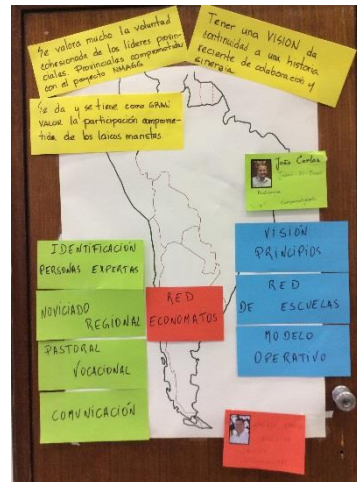 Se valora mucho la voluntad
cohesionada de los líderes provin-
ciales. Provinciales comprometidos
con el proyecto
Tener una VISION da
continuidad a una historia
reciente de colaboración y
sinergia
Se da y se tiene como GRAN
VALOR la participación comprome-
tida de los laicos maristas.
João Carlos
IDENTIFICACIÓN
PERSONAS EXPERTAS
NOVICIADO
REGIONAL
PASTORAL
VOCACIONAL
COMUNICACIÓN
RED
ECONOMATOS
VISIÓN
PRINCIPIOS
RED
DE ESCUELAS
MODELO
OPERATIVO